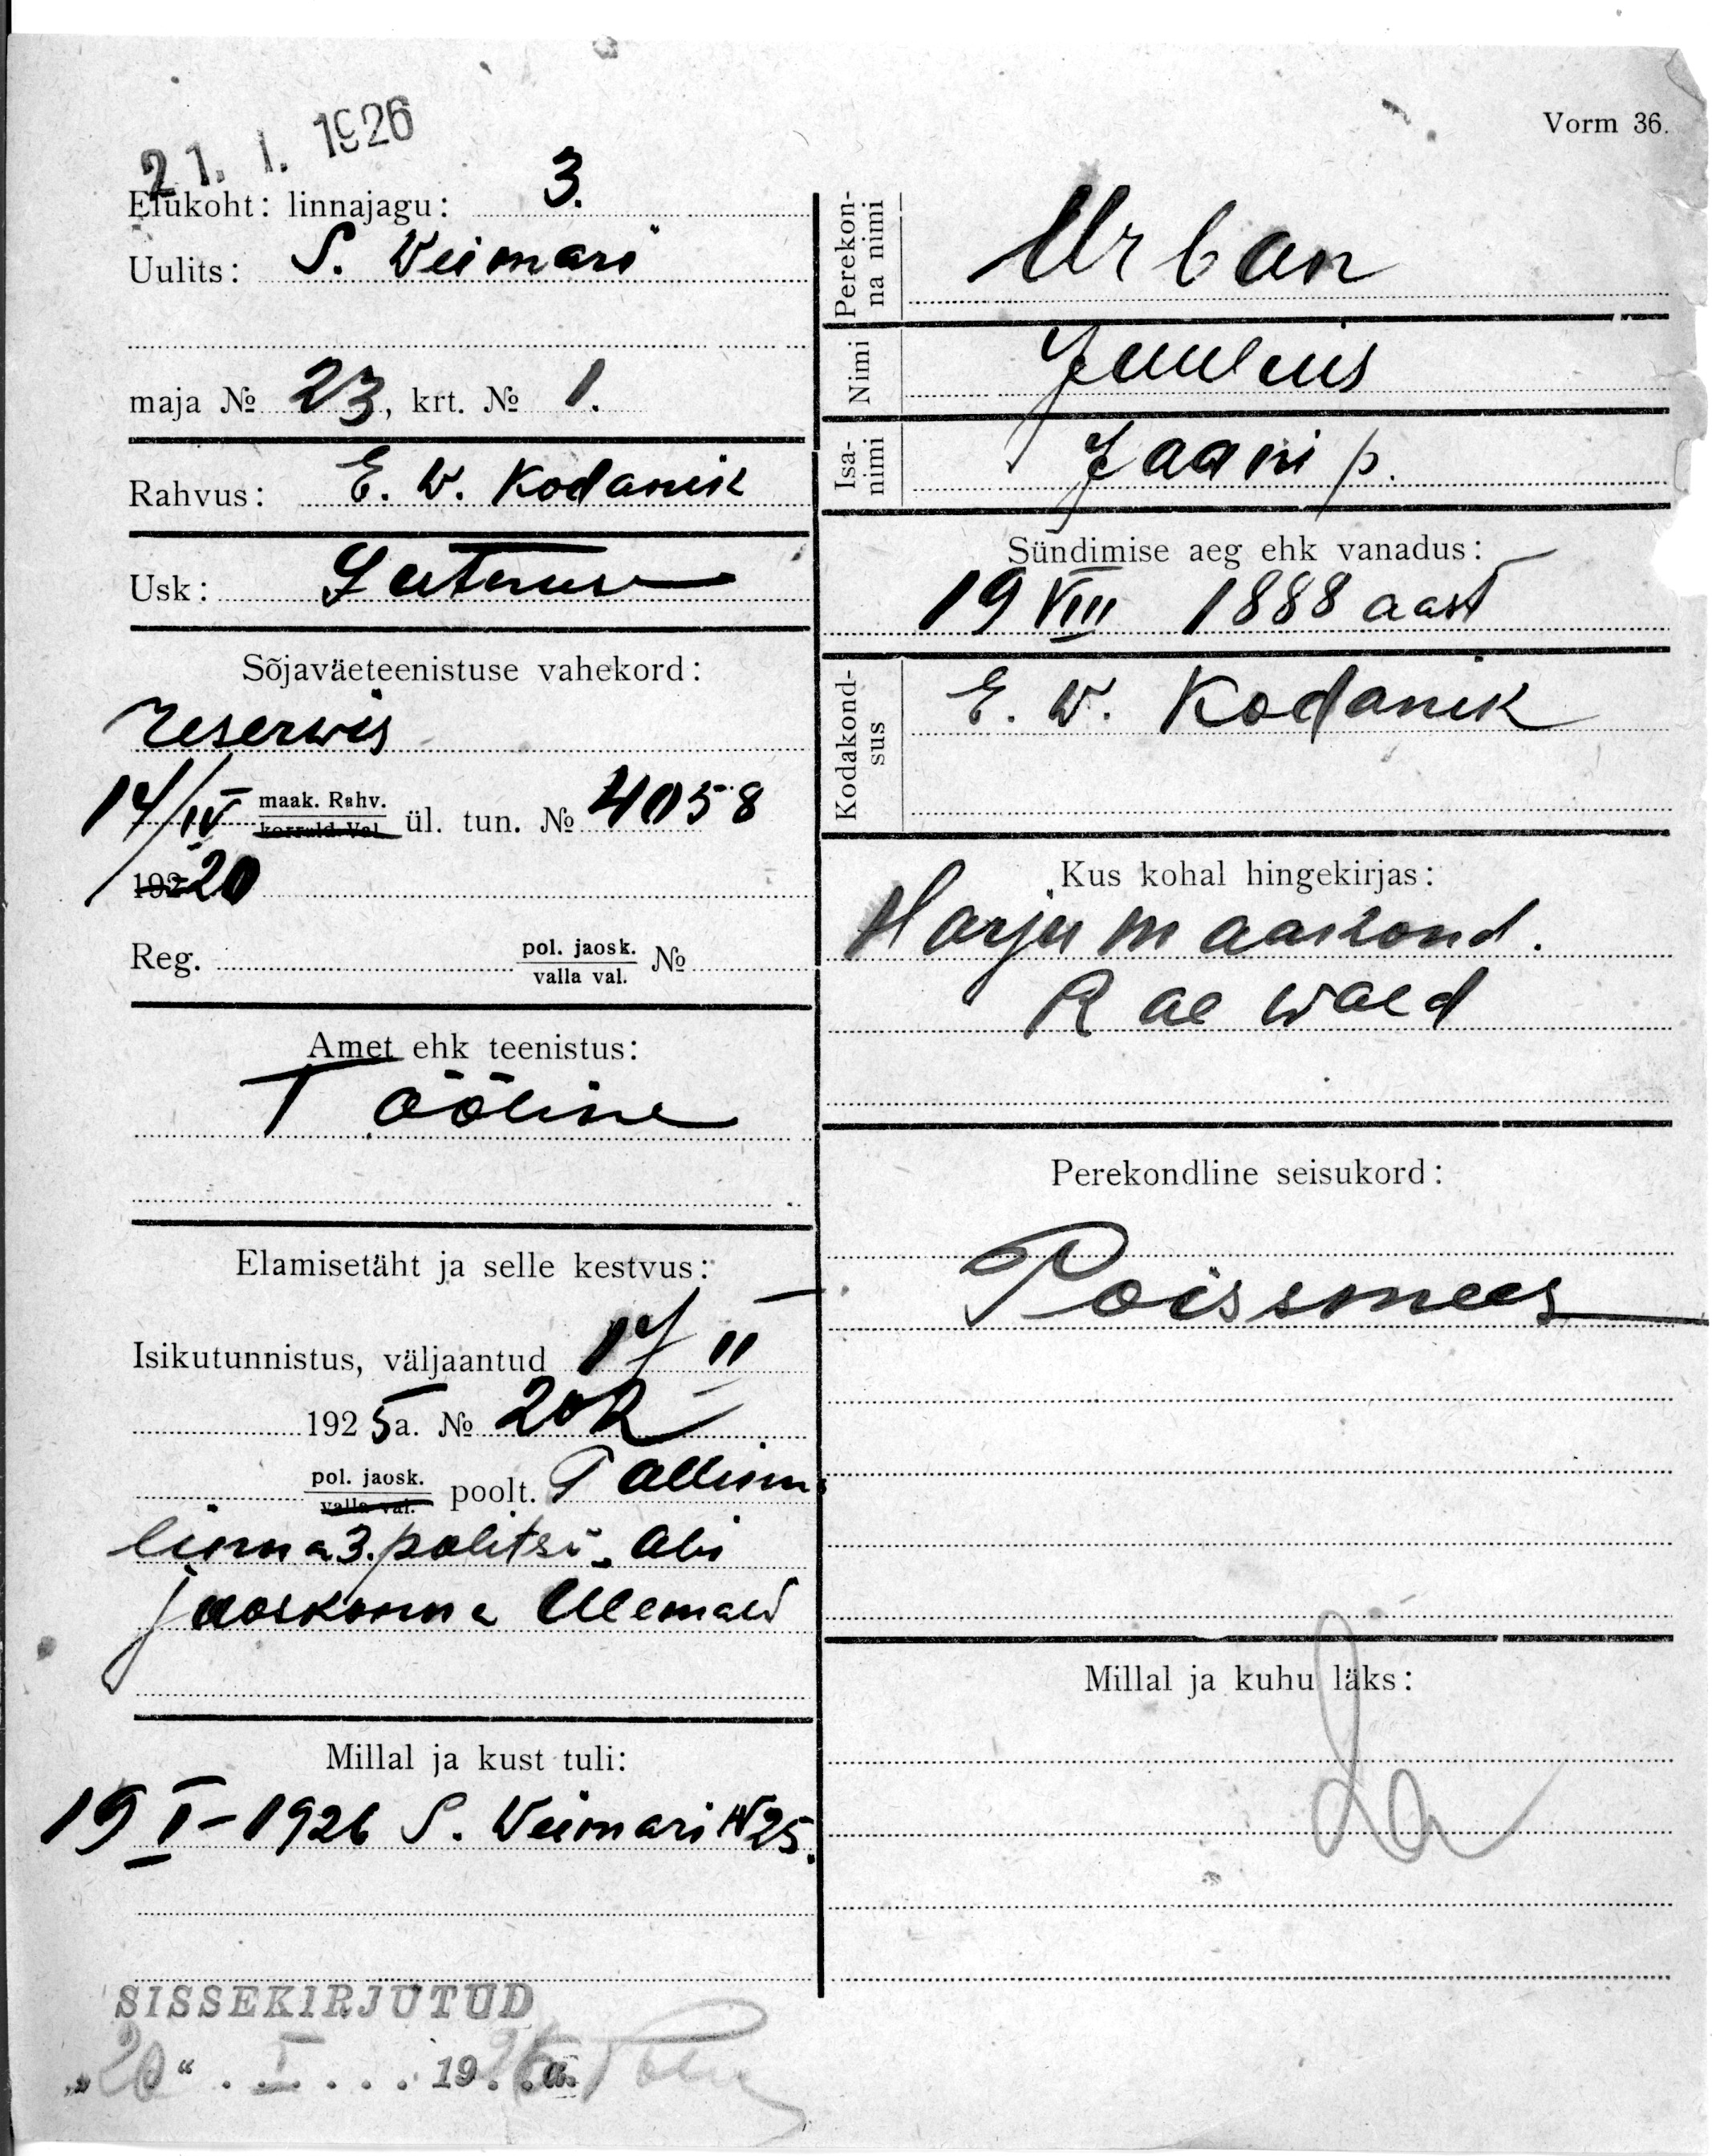 21. 1. 1926
Vorm 36.
Elukoht: linnajagu: 3.
Uulits: S. Weimari
maja № 23, krt. № 1.
Rahvus: E. W. Kodanik
Usk: Luterus
Sõjaväeteenistuse vahekord:
reserwis
14/IV maak. Rahv. korrald. Val. ül. tun. № 4058
192 20
Reg. pol. jaosk. valla val. №
Amet ehk teenistus:
Tööline
Elamisetäht ja selle kestvus:
Isikutunnistus, väljaantud 14 II
1925 a. № 202
pol. jaosk. valla val. poolt. Tallinna
linna 3. politsei Abi
jaoskonna Ülemalt
Millal ja kust tuli:
19 I - 1926 S. Weimari N 25.
SISSEKIRJUTUD
"20" . I . . . . 1926 a.
Perekonna nimi
Urban
Nimi
Juulius
Isanimi
Jaani p.
Sündimise aeg ehk vanadus:
19 VIII 1888 aast
Kodakondsus
E. W. Kodanik
Kus kohal hingekirjas:
Harju maakond.
Rae wald
Perekondline seisukord:
Poissmees
Millal ja kuhu läks: